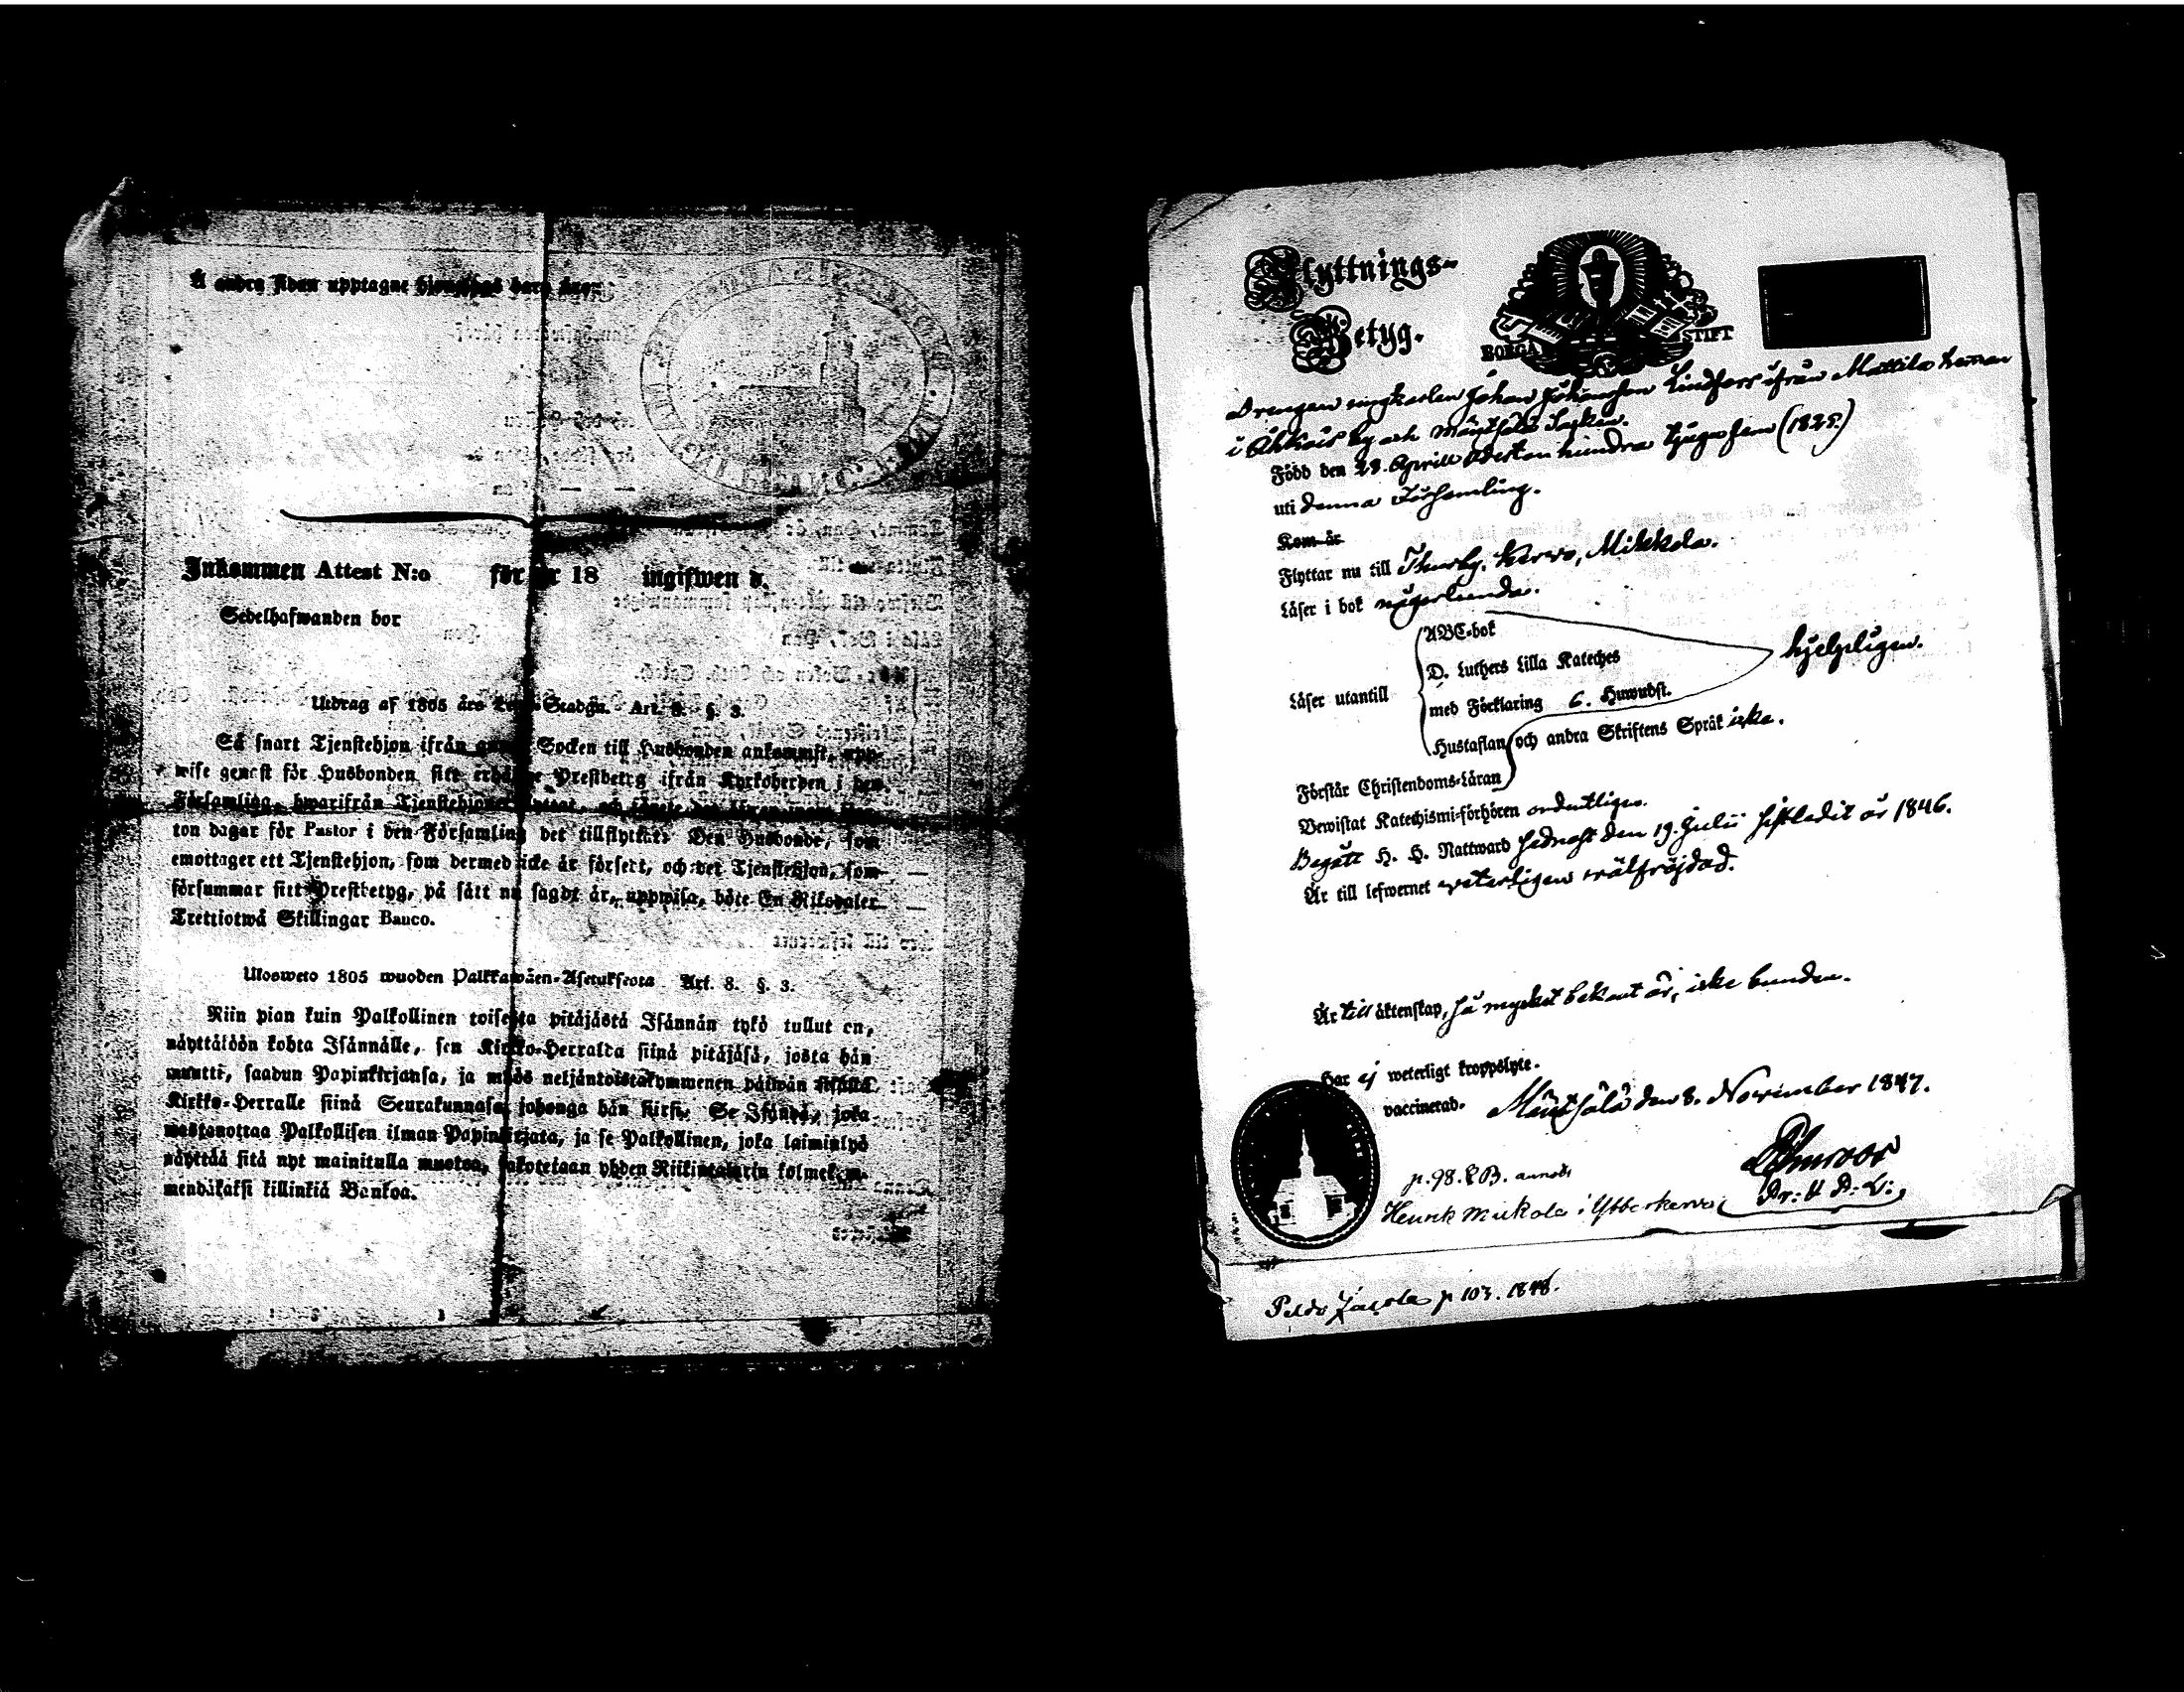 Å andra sidan upptagne hjonelags barn äro:
Inkommen Attest N:o för år 18 ingifwen d.
Sedelhafwanden bor
Utdrag af 1805 års Lego-Stadga. Art. 8. §. 3.
Så snart Tjenstehjon ifrån annan Socken till Husbonden ankommit, upp-
wise genast för Husbonden sitt erhållne Prestbetyg ifrån Kyrkoherden i den
Församling, hwarifrån Tjenstehjonet
ton dagar för Pastor i den Församling det tillflyttat. Den Husbonde, som
emottager ett Tjenstehjon, som dermed icke är försett, och det Tjenstehjon, som
försummar sitt Prestbetyg, på sätt nu sagdt är, uppwisa, böte En Riksdaler
Trettiotwå Skillingar Banco.
Ulosweto 1805 wuoden Palkkawäen-Asetuksesta Art. 8. §. 3.
Niin pian kuin Palkollinen toisesta pitäjästä Isännän tykö tullut on,
näyttäköön kohta Isännälle, sen Kirkko-Herralta siinä pitäjäsä, josta hän
muutti, saadun Papinkirjansa, ja myös neljäntoistakymmenen päiwän sisällä
Kirkko-Herralle siinä Seurakunnasa, johonga hän siirsi. Se Isäntä, joka
wastanottaa Palkollisen ilman Papinkirjata, ja se Palkollinen, joka laiminlyö
näyttää sitä nyt mainitulla muotoa, sakotetaan yhden Riikintalarin kolmekym-
mendäkaksi killinkiä Bankoa.
Flyttnings-
Betyg.
BORGÅ STIFT
Drengen ungkarlen Johan Johansson Lindfors ifrån Mattila hemman
i Ahkois by och Mäntsälä Socken.
Född den 28. Aprill Aderton hundra tjugofem (1825)
uti denna Församling.
Kom år
Flyttar nu till Thusby, Kervo, Mikkola.
Läser i bok någorlunda.
Läser utantill
ABC-bok
D. Luthers Lilla Kateches
med Förklaring 6. Huwudst.
Hustaflan och andra Skriftens Språk icke.
hjelpligen.
Förstår Christendoms-Läran
Bewistat Katechismi-förhören ordentligen.
Begått H. H. Nattward sednast den 19. Julii sistledit år 1846.
Är till lefwernet veterligen wälfrejdad.
Är till äktenskap, så mycket bekant är, icke bunden.
Har ej weterligt kroppslyte.
vaccinerad.
Mäntsälä den 8. November 1847.
p. 98. B. annott
Henrik Mikola i Ytterkervo
Peldo Jacola p 103. 1848.